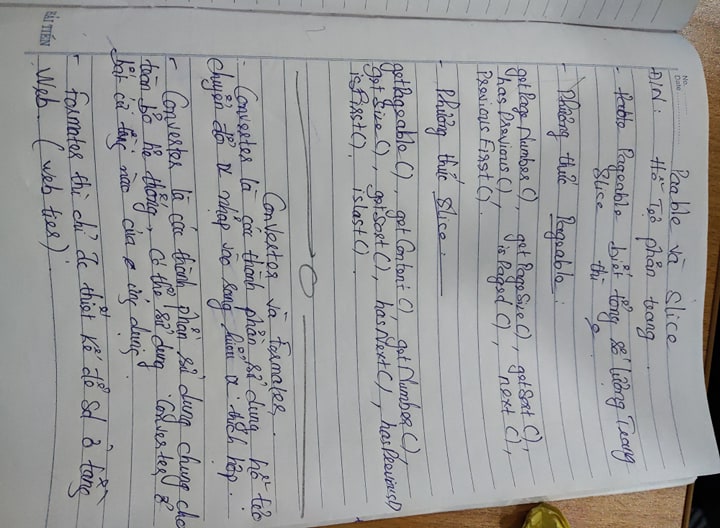 No.
Date
Paable và Slice
Đ/N: Hỗ Trợ phân trang.
- Pable Pageable biết tổng số lượng Trang
Slice thì
- Phương thức Pageable:
getPageNumber(), getPageSize(), getSort(),
hasPrevious(), isPaged(), next(),
PreviousFirst().
- Phương thức Slice.
getPageable(), getContent(), getNumber(),
getSize(), getSort(), hasNext(), hasPrevious()
isFirst(), isLast().
Converter và Formater.
- Converter là các thành phần sử dụng hỗ trợ
chuyển đổ từ nhập vào sang kiểu thích hợp.
- Converter là các thành phần sử dụng chung cho
toàn bộ hệ thống, Có thể sử dụng Converter ở
bất cứ tầng nào của ứng dụng.
- Formater thì chỉ đc thiết kế để sd ở tầng
Web. (web tier)
HẢI TIẾN